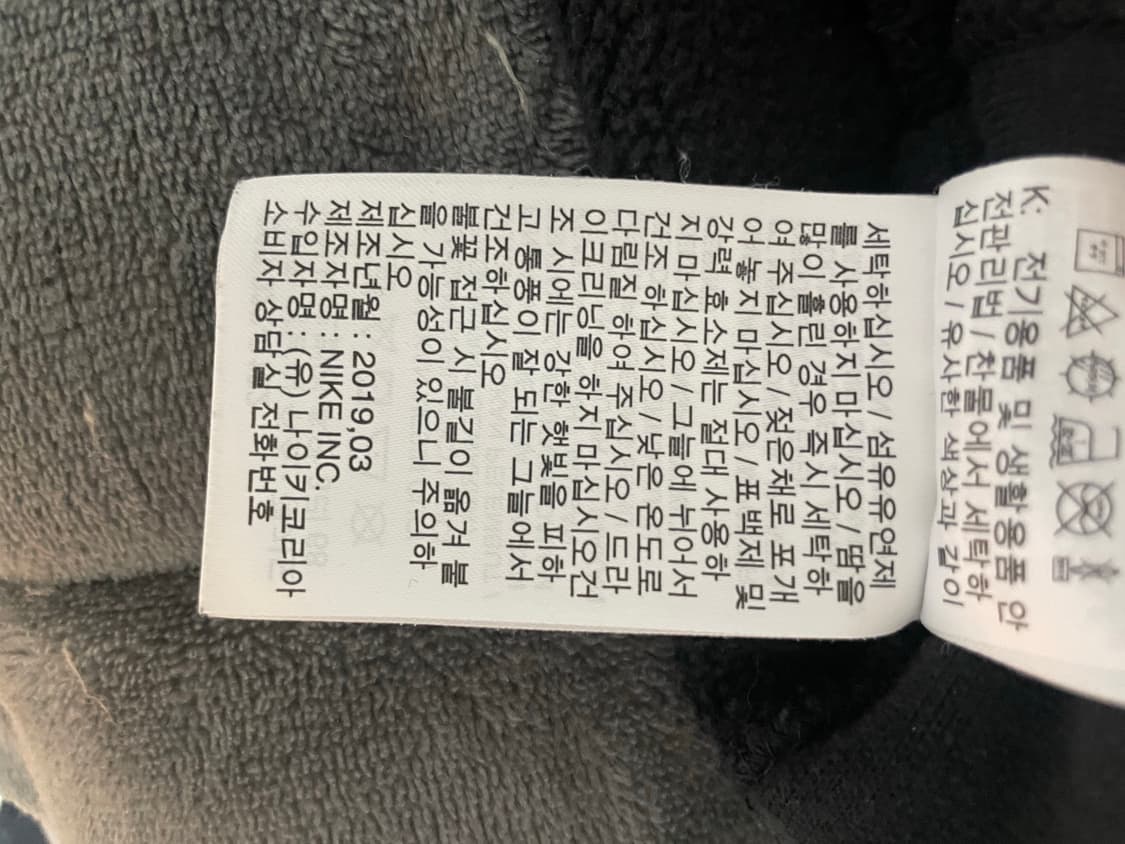 K: 전기용품 및 생활용품 안
전관리법 / 찬물에서 세탁하
십시오 / 유사한 색상과 같이
세탁하십시오 / 섬유유연제
를 사용하지 마십시오 / 땀을
많이 흘린 경우 즉시 세탁하
여 주십시오 / 젖은채로 포개
어 놓지 마십시오 / 표백제 및
강력 효소제는 절대 사용하
지 마십시오 / 그늘에 뉘어서
건조 하십시오 / 낮은 온도로
다림질 하여 주십시오 / 드라
이크리닝을 하지 마십시오건
조 시에는 강한 햇빛을 피하
고 통풍이 잘 되는 그늘에서
건조하십시오
불꽃 접근 시 불길이 옮겨 붙
을 가능성이 있으니 주의하
십시오
제조년월 : 2019,03
제조자명 : NIKE INC.
수입자명 : (유) 나이키코리아
소비자 상담실 전화번호